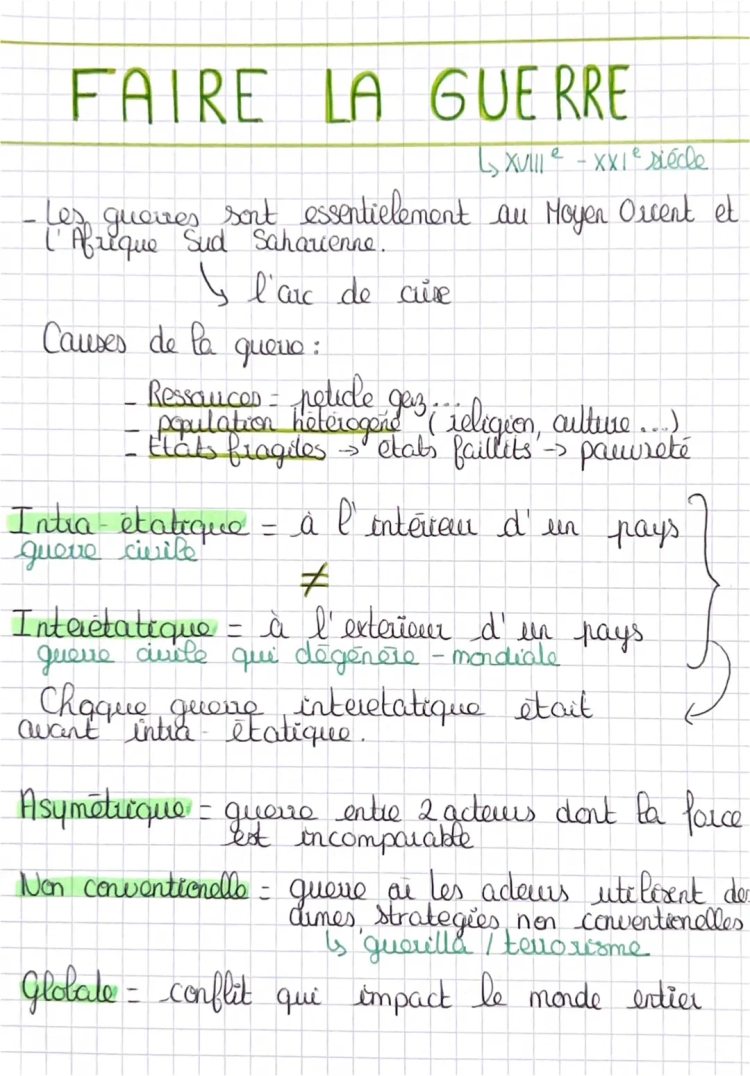 FAIRE LA GUERRE
↳ XVIIIe - XXIe siècle
- Les guerres sont essentielement au Moyen Orient et
l'Afrique Sud Saharienne.
↳ l'arc de crise
Causes de la guerre :
- Ressources = petrole gaz...
- population hétérogène (religion, culture ...)
- Etats fragiles → etats faillits → pauvreté
Intra-étatique = à l'intérieur d'un pays
guerre civile
≠
Interétatique = à l'exterieur d'un pays
guerre civile qui dégénère - mondiale
Chaque guerre interetatique était
avant intra-étatique.
Asymétrique = guerre entre 2 acteurs dont la force
est incomparable
Non conventionelle = guerre où les acteurs utilisent des
armes, strategies non conventionelles
↳ guerilla / terrorisme
Globale = conflit qui impact le monde entier